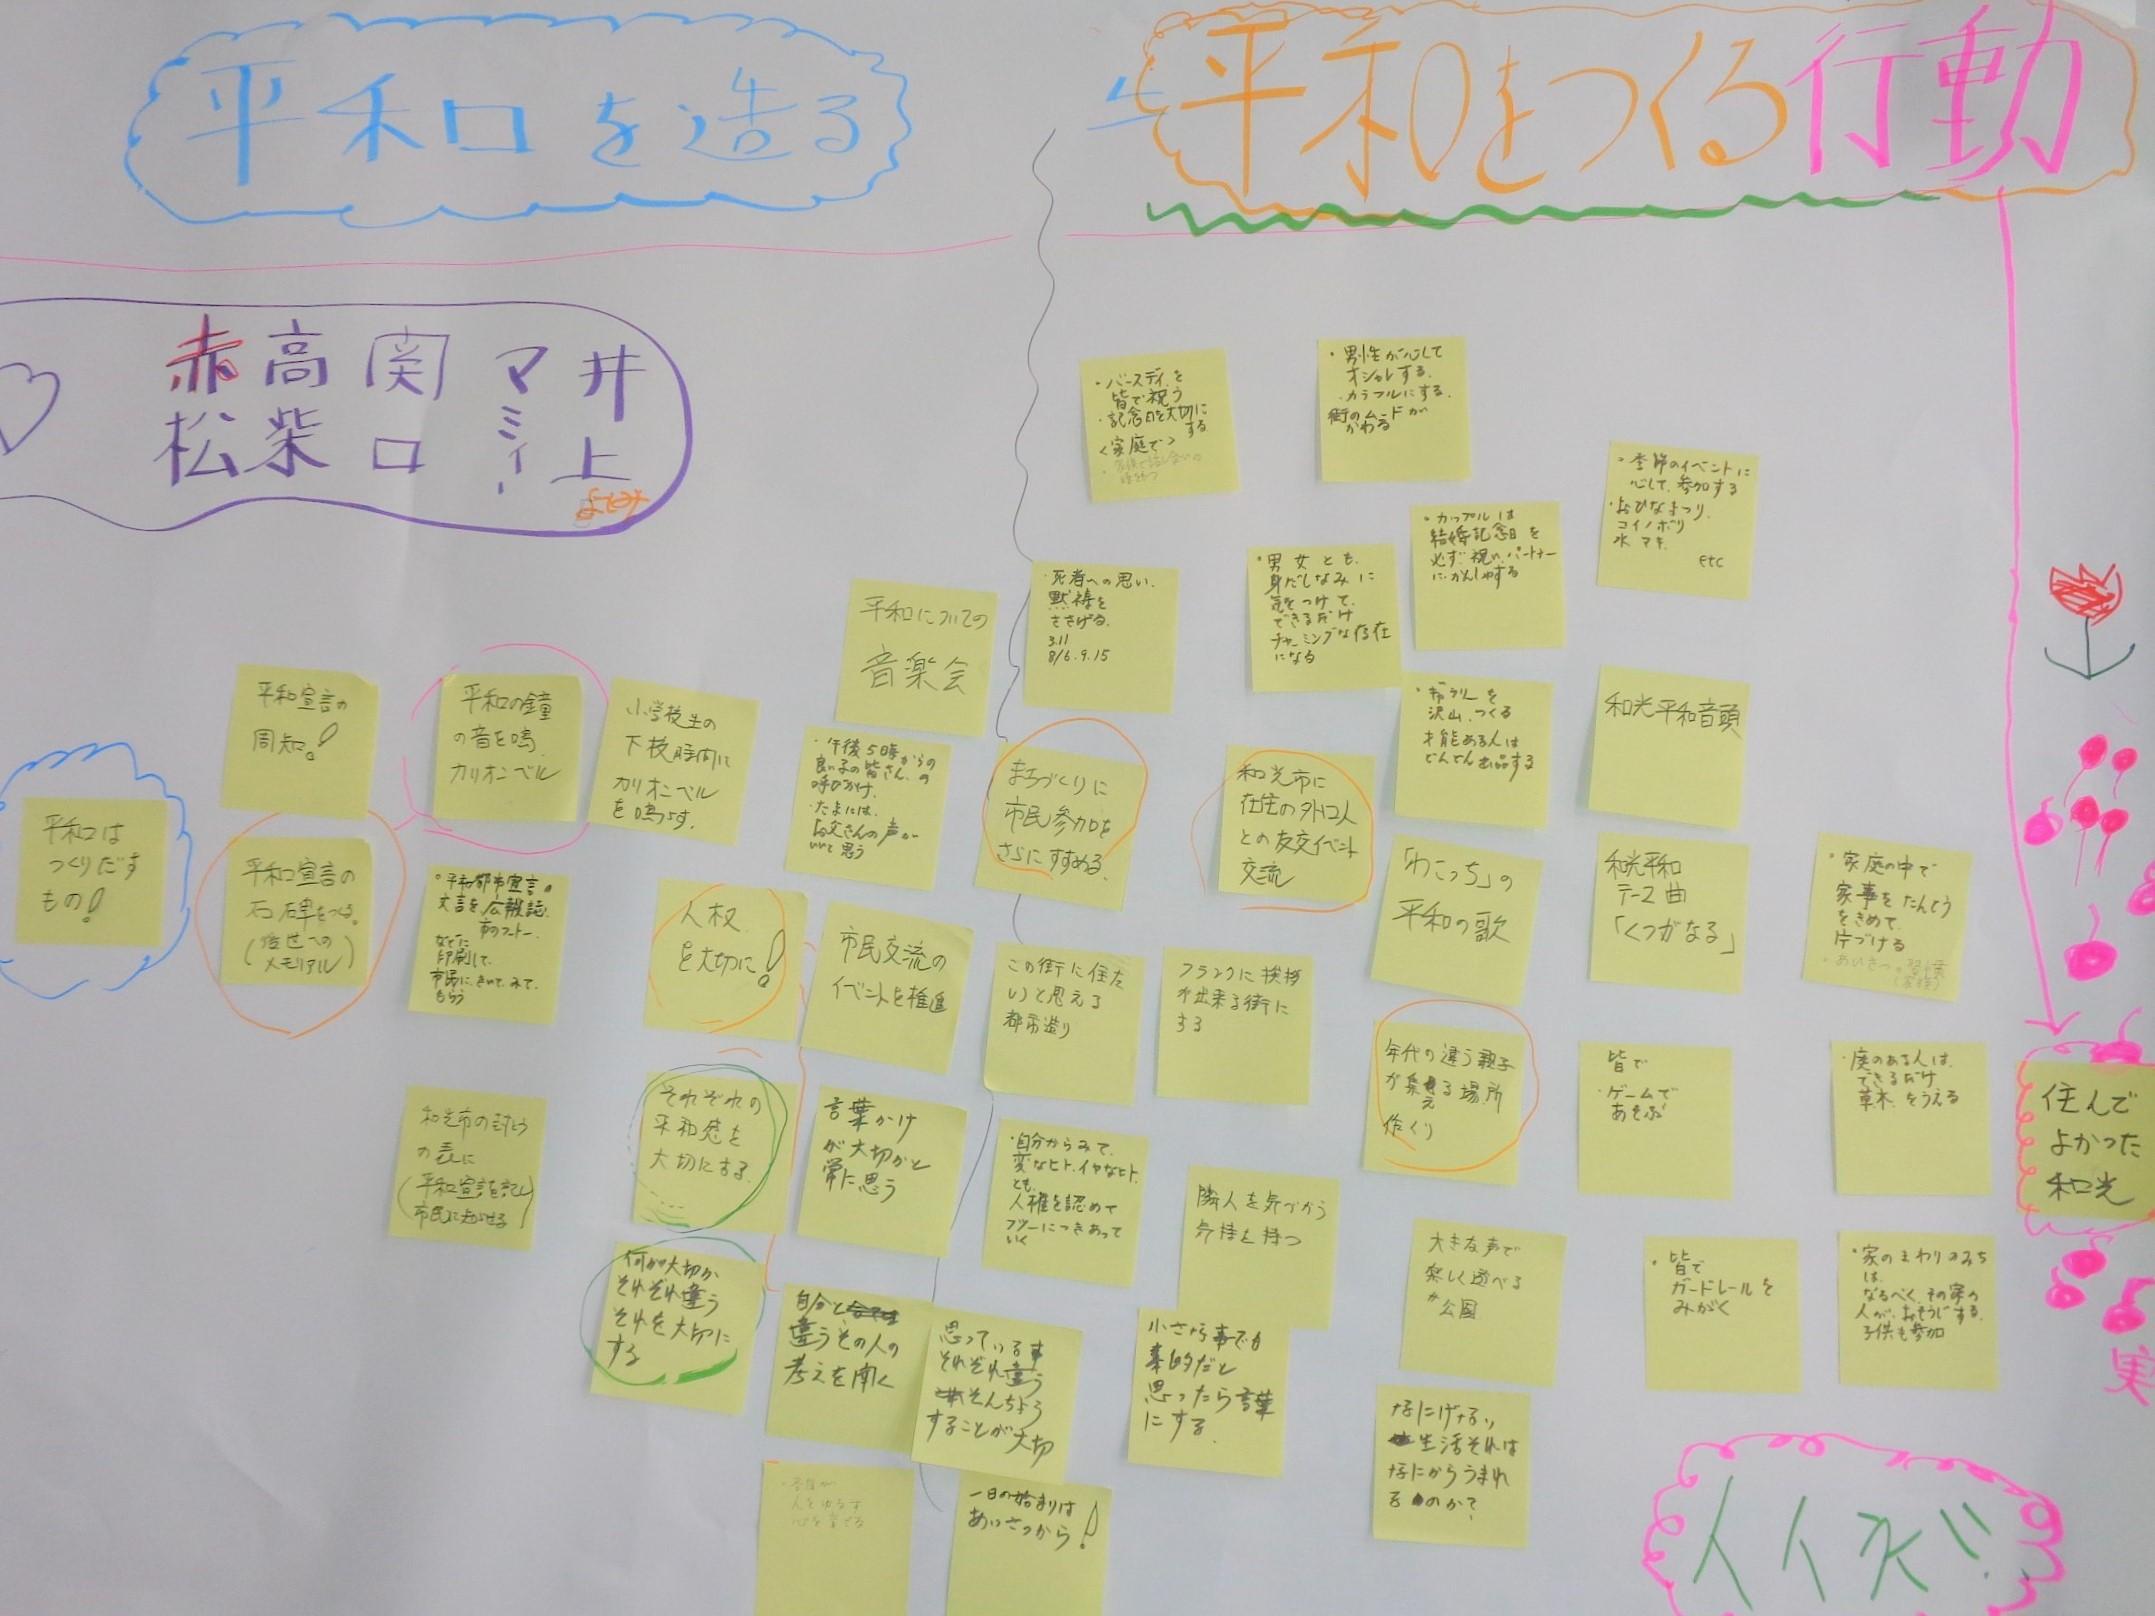 平和を造る
平和をつくる行動
赤松
高柴
関口
マミィー
井上
・バースディを
皆で祝う
・記念日を大切に
する
<家庭で>
・男性が心して
オシャレする。
・カラフルにする。
街のムードが
かわる
・季節のイベントに
心して、参加する
・おひなまつり、
コイノボリ
水マキ
etc
・カップルは
結婚記念日を
必ず祝い、パートナー
に、かんしゃする
・男女とも、
身だしなみに
気をつけて、
できるだけ
チャーミングな存在
になる
・死者への思い、
黙祷を
ささげる。
3.11
8/6.9.15
平和についての
音楽会
平和宣言の
周知。!
平和の鐘
の音を鳴
カリオンベル
小学校生の
下校時間に
カリオンベル
を鳴らす。
・午後5時からの
良い子の皆さん、の
呼びかけ、
・たまには、
お父さんの声が
いいと思う
まちづくりに
市民参加を
さらにすすめる。
和光市に
在住の外国人
との友交イベント
交流
・ギャラリーを
沢山、つくる
才能ある人は
どんどん出品する
和光平和音頭
平和は
つくりだす
もの!
平和宣言の
石碑をつくる。
(後世への
メモリアル)
・平和都市宣言の
文言を、広報誌、
などに
印刷して、
市民に、きいて、みて、
もらう
人权
を大切に!
市民交流の
イベントを推進
この街に住た
いと思える
都市造り
フランクに挨拶
が出来る街に
する
「わこっち」の
平和の歌
和光平和
テーマ曲
「くつがなる」
・家庭の中で
家事をたんとう
をきめて、
片づける
和光市の封とう
の表に
(平和宣言を記し
市民に知らせる)
それぞれの
平和感を
大切にする。
言葉かけ
が大切かと
常に思う
・自分からみて、
変なヒト、イヤなヒト、
とも、
人権を認めて
フツーにつきあって
いく
隣人を気づかう
気持を持つ
年代の違う親子
が集える場所
作くり
皆で
・ゲームで
あそぶ
・庭のある人は、
できるだけ
草木をうえる
住んで
よかった
和光
何が大切か
それぞれ違う
それを大切に
する
自分と
違うその人の
考えを聞く
思っている事
それぞれ違う
そんちょう
することが大切
小さな事でも
素的だと
思ったら言葉
にする。
大きな声で
楽しく遊べる
公園
・皆で
ガードレールを
みがく
・家のまわりのみち
は、
なるべく、その家の
人が、おそうじする。
子供も参加
なにげない
生活それは
なにからうまれ
るのか?
一日の始まりは
あいさつから!
実